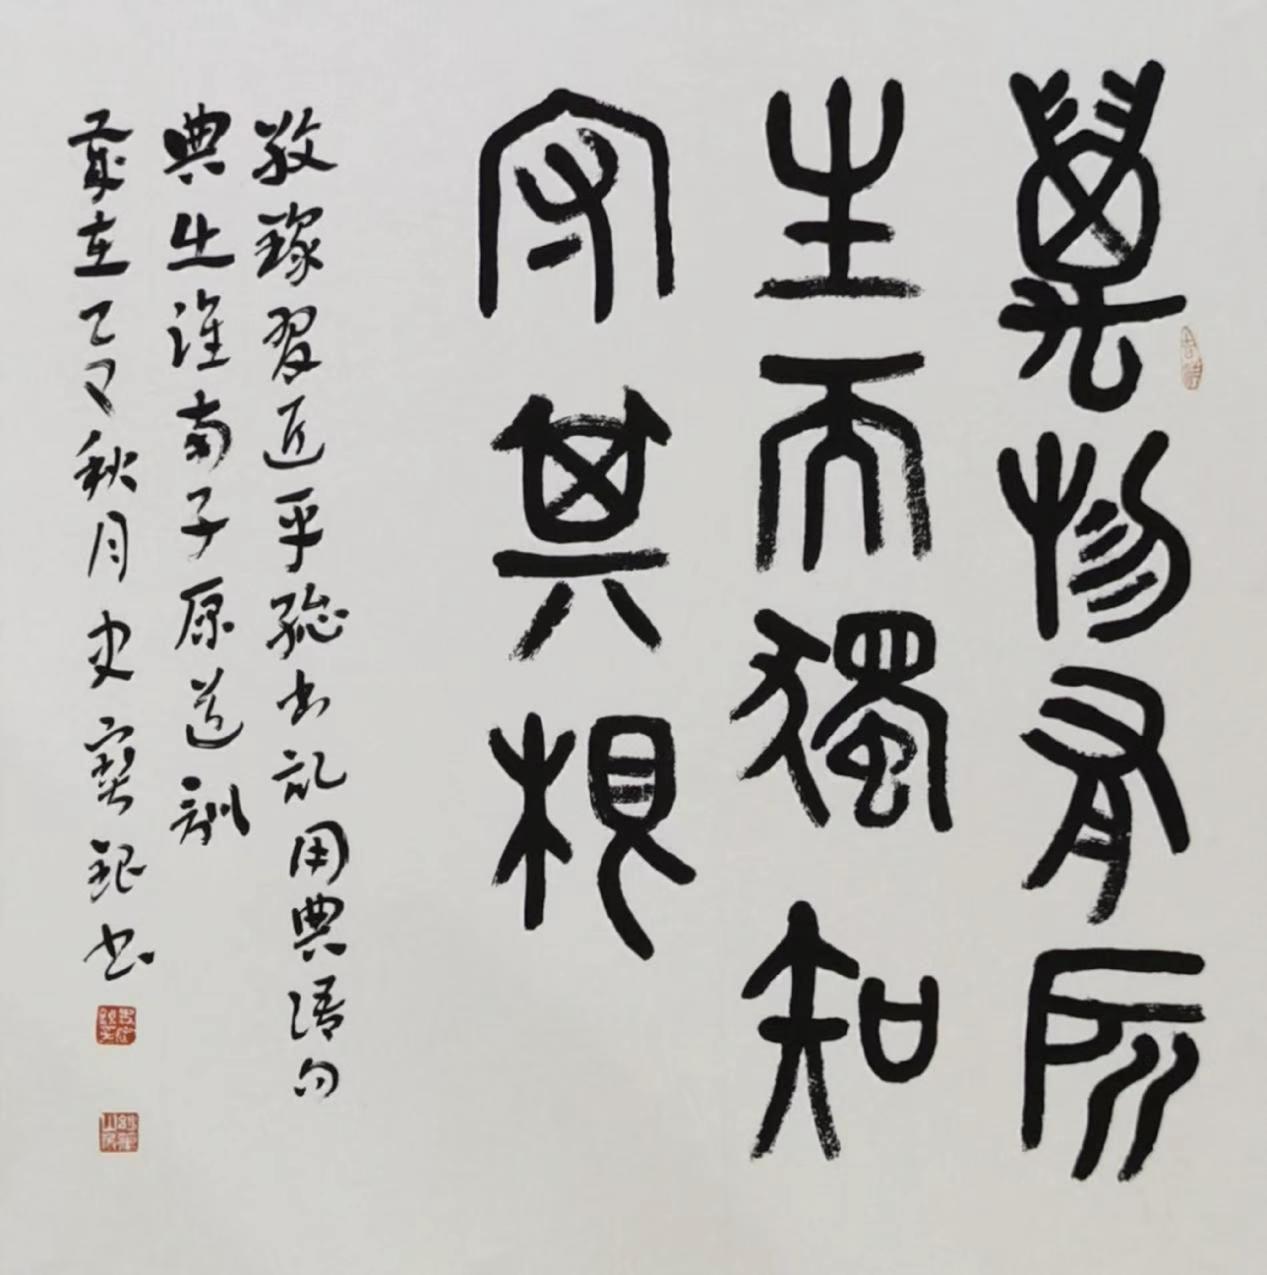 萬物有所
生而獨知
守其根
敬録習近平總书記用典语句
典出淮南子原道訓
歲在乙丑秋月史寶銀书